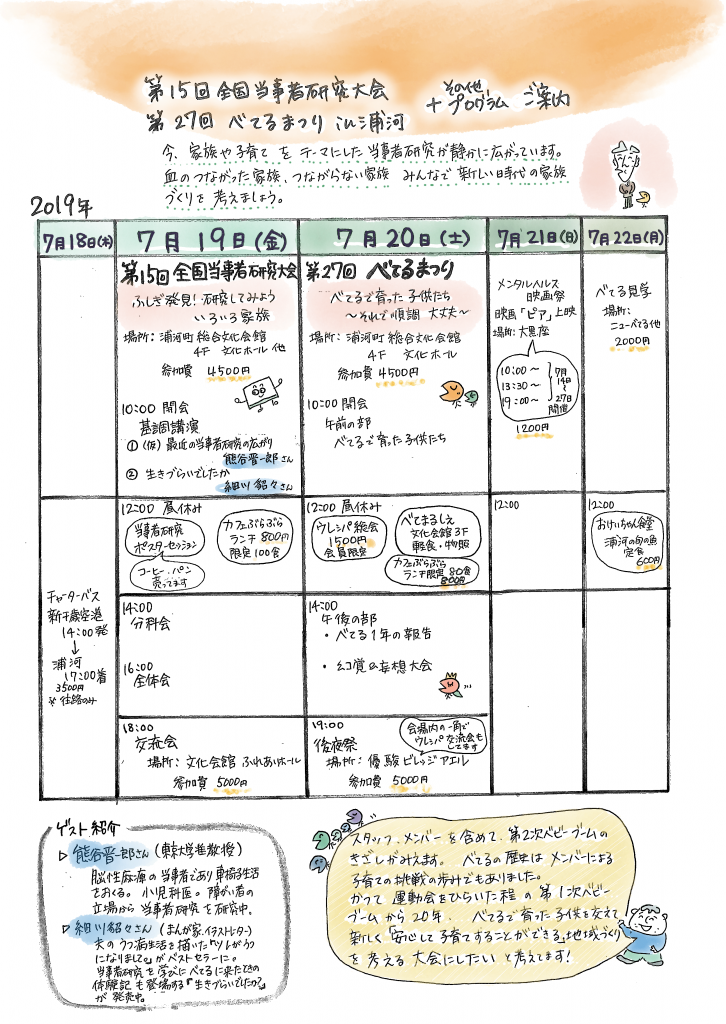 第15回全国当事者研究大会
第27回 べてるまつり in 浦河
+ その他プログラム ご案内
今、家族や子育て をテーマにした当事者研究が静かに広がっています。
血のつながった家族、つながらない家族 みんなで 新しい時代の家族
づくりを 考えましょう。
2019年
7月18日(木)
7月19日(金)
7月20日(土)
7月21日(日)
7月22日(月)
第15回 全国当事者研究大会
ふしぎ発見!研究してみよう
いろいろ家族
場所:浦河町総合文化会館
4F 文化ホール 他
参加費 4500円
10:00 開会
基調講演
①(仮)最近の当事者研究の広がり
熊谷晋一郎さん
② 生きづらいでしたか
細川貂々さん
第27回 べてるまつり
べてるで育った子供たち
〜それで順調 大丈夫〜
場所:浦河町総合文化会館
4F 文化ホール
参加費 4500円
10:00 開会
午前の部
べてるで育った子供たち
メンタルヘルス
映画祭
映画「ピア」上映
場所:大黒座
10:00〜
13:30〜
19:00〜
7月
14日
〜
27日
開催
1200円
べてる見学
場所:
ニューべてる他
2000円
12:00 昼休み
当事者研究
ポスターセッション
カフェぶらぶら
ランチ 800円
限定100食
コーヒー、パン
売ってます
12:00 昼休み
ウレシパ総会
1500円
会員限定
べてまるしぇ
文化会館3F
軽食・物販
カフェぶらぶら
ランチ限定80食
800円
12:00
12:00
おけいちゃん食堂
浦河の旬の魚
定食
600円
チャーターバス
新千歳空港
14:00発
↓
浦河
17:00着
3500円
※往路のみ
14:00
分科会
16:00
全体会
14:00
午後の部
・べてる1年の報告
・幻覚&妄想大会
18:00
交流会
場所:文化会館 ふれあいホール
参加費 5000円
19:00
後夜祭
場所:優駿ビレッジアエル
参加費 5000円
会場内の一角で
ウレシパ交流会も
してます
ゲスト紹介
▷ 熊谷晋一郎さん(東京大学准教授)
脳性麻痺の当事者であり車椅子生活
をおくる。小児科医。障がい者の
立場から 当事者研究を研究中。
▷ 細川貂々さん(まんが家、イラストレーター)
夫のうつ病生活を描いた『ツレがうつ
になりまして。』がベストセラーに。
当事者研究を学びにべてるに来たときの
体験記も登場する『生きづらいでしたか?』
が発売中。
スタッフ、メンバーを含めて、第2次ベビーブームの
きざしがみえます。べてるの歴史はメンバーによる
子育ての挑戦の歩みでもありました。
かつて運動会をひらいた程の第1次ベビー
ブームから20年、べてるで育った子供を交えて
新しく「安心して子育てすることができる」地域づくり
を考える大会にしたいと考えてます!